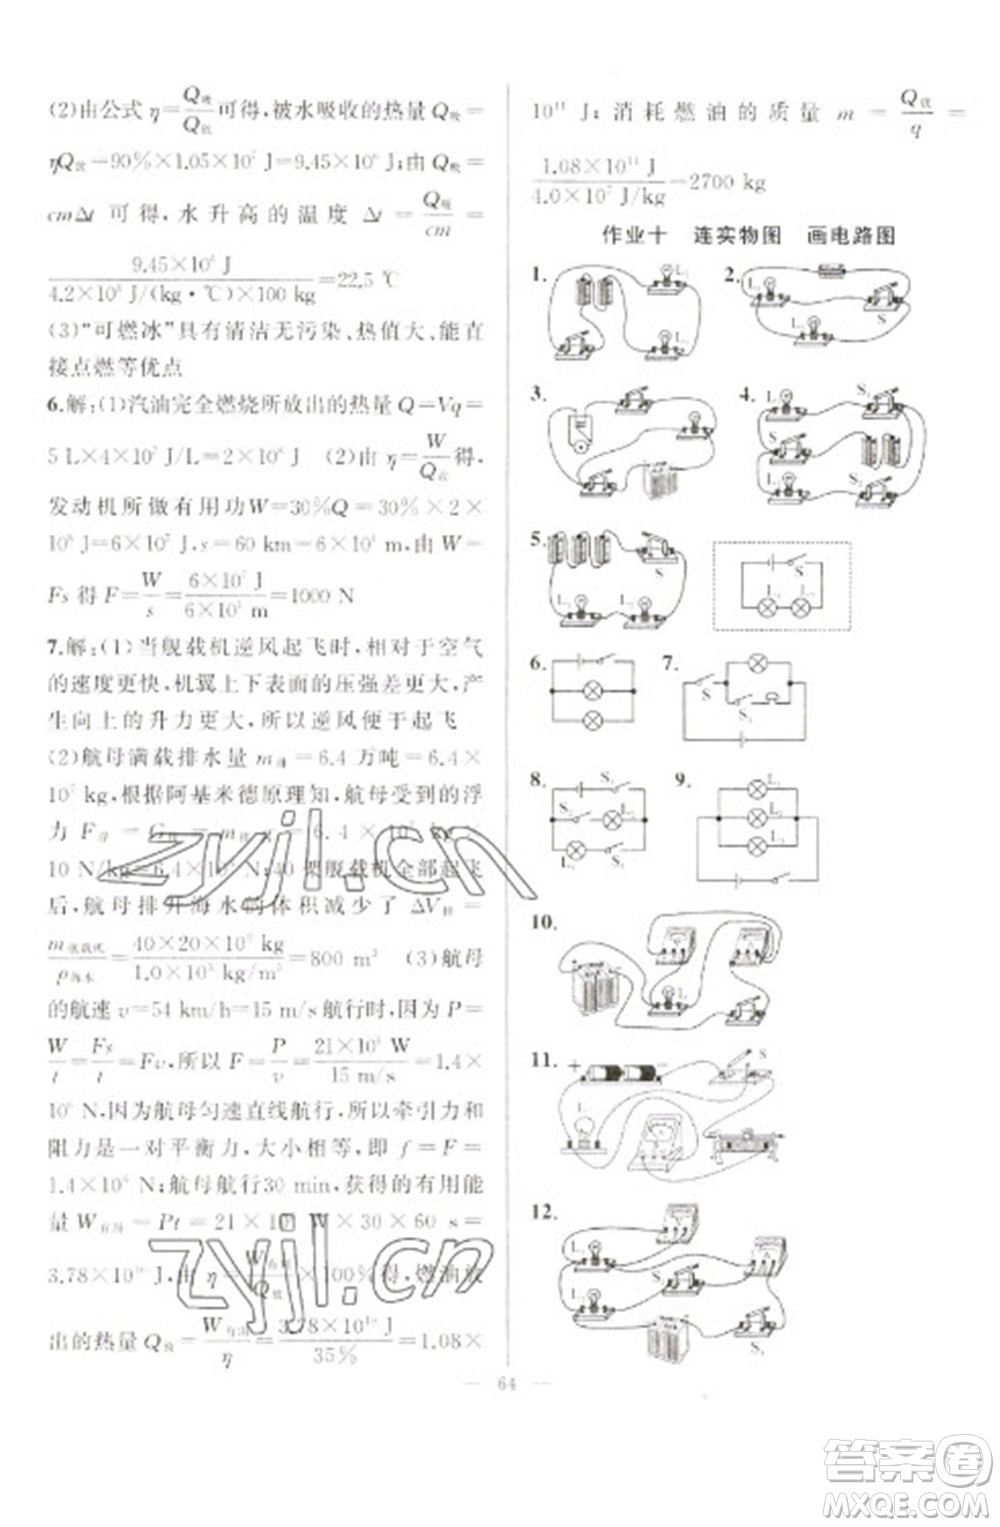 (2)由公式η=Q吸/Q放可得,被水吸收的热量Q吸=
ηQ放=90%×1.05×10⁷ J=9.45×10⁶ J;由Q吸=
cmΔt 可得,水升高的温度 Δt=Q吸/cm=
9.45×10⁶ J/4.2×10³ J/(kg·℃)×100 kg=22.5 ℃
(3)“可燃冰”具有清洁无污染、热值大、能直
接点燃等优点
6.解:(1)汽油完全燃烧所放出的热量Q=Vq=
5 L×4×10⁷ J/L=2×10⁸ J (2)由η=W/Q放得,
发动机所做有用功W=30%Q=30%×2×
10⁸ J=6×10⁷ J,s=60 km=6×10⁴ m,由W=
Fs得F=W/s=6×10⁷ J/6×10⁴ m=1000 N
7.解:(1)当舰载机逆风起飞时,相对于空气
的速度更快,机翼上下表面的压强差更大,产
生向上的升力更大,所以逆风便于起飞
(2)航母满载排水量m排=6.4万吨=6.4×
10⁷ kg,根据阿基米德原理知,航母受到的浮
力F浮=G排=m排g=6.4×10⁷ kg×
10 N/kg=6.4×10⁸ N;40架舰载机全部起飞
后,航母排开海水的体积减少了ΔV排=
m舰载机/ρ海水=40×20×10³ kg/1.0×10³ kg/m³=800 m³ (3)航母
的航速v=54 km/h=15 m/s航行时,根据P=
W/t=Fs/t=Fv,所以F=P/v=21×10⁶ W/15 m/s=1.4×
10⁶ N,因为航母匀速直线航行,所以牵引力和
阻力是一对平衡力,大小相等,即f=F=
1.4×10⁶ N;航母航行30 min,获得的有用能
量W有用=Pt=21×10⁶ W×30×60 s=
3.78×10¹⁰ J,由η=W有用/Q放×100%得,燃油放
出的热量Q放=W有用/η=3.78×10¹⁰ J/35%=1.08×
10¹¹ J;消耗燃油的质量 m=Q放/q=
1.08×10¹¹ J/4.0×10⁷ J/kg=2700 kg
作业十 连实物图 画电路图
1. L₁ L₂ S
2. L₁ L₂ S
3.
4. L₁ S₁ S L₂ S₂
5. L₁ L₂ S
S L₁ L₂
6.
7. S S
8. S₁ S₂ L₂ L₁ S₃
9. L₁ L₂ L₃
10. L₂ L₁ S
11. + − S L
12. L₁ L₂ S₂ S₁
64
zyjl.cn
zyjl.cn
答案圈
MXQE.COM